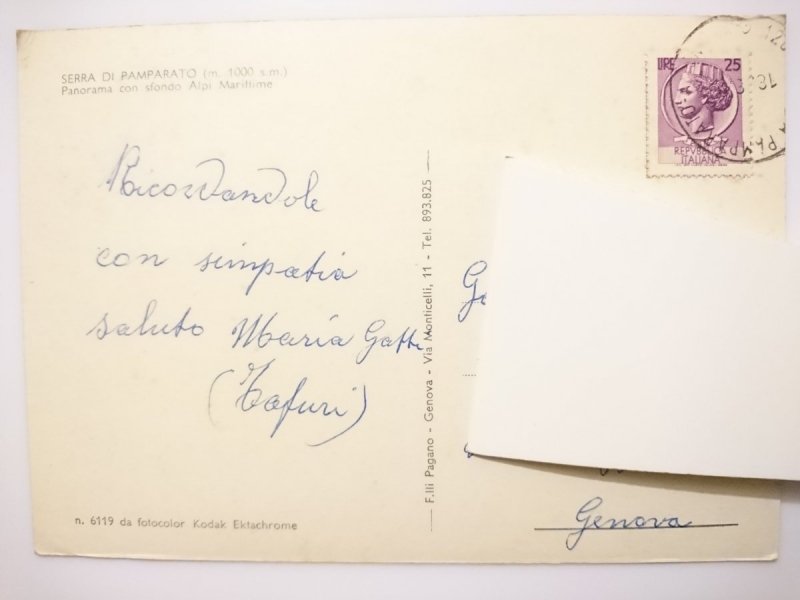 SERRA DI PAMPARATO (m. 1000 s.m.)
Panorama con sfondo Alpi Marittime
Ricordandole
con simpatia
saluto Maria Gatti
(Tafuri)
n. 6119 da fotocolor Kodak Ektachrome
F.lli Pagano - Genova - Via Monticelli, 11 - Tel. 893.825
LIRE 25
REPVBBLICA
ITALIANA
PAMPARATO
Genova